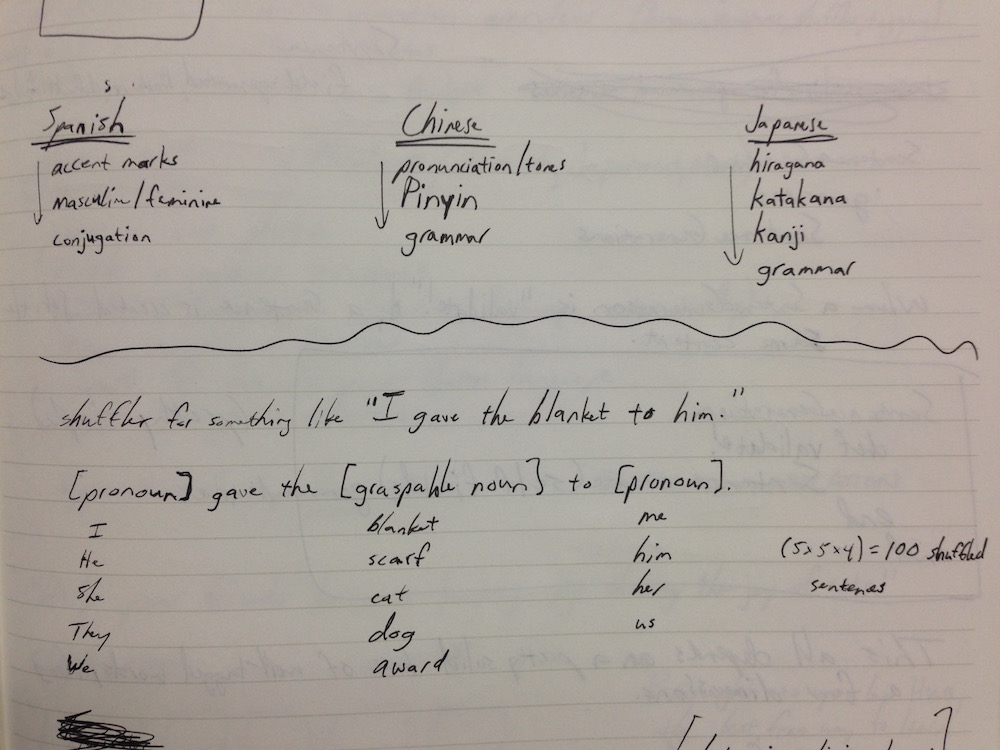 s
Spanish
accent marks
masculine/feminine
conjugation
Chinese
pronunciation/tones
Pinyin
grammar
Japanese
hiragana
katakana
kanji
grammar
shuffler for something like "I gave the blanket to him."
[pronoun] gave the [graspable noun] to [pronoun].
I
He
She
They
We
blanket
scarf
cat
dog
award
me
him
her
us
(5x5x4) = 100 shuffled
sentences